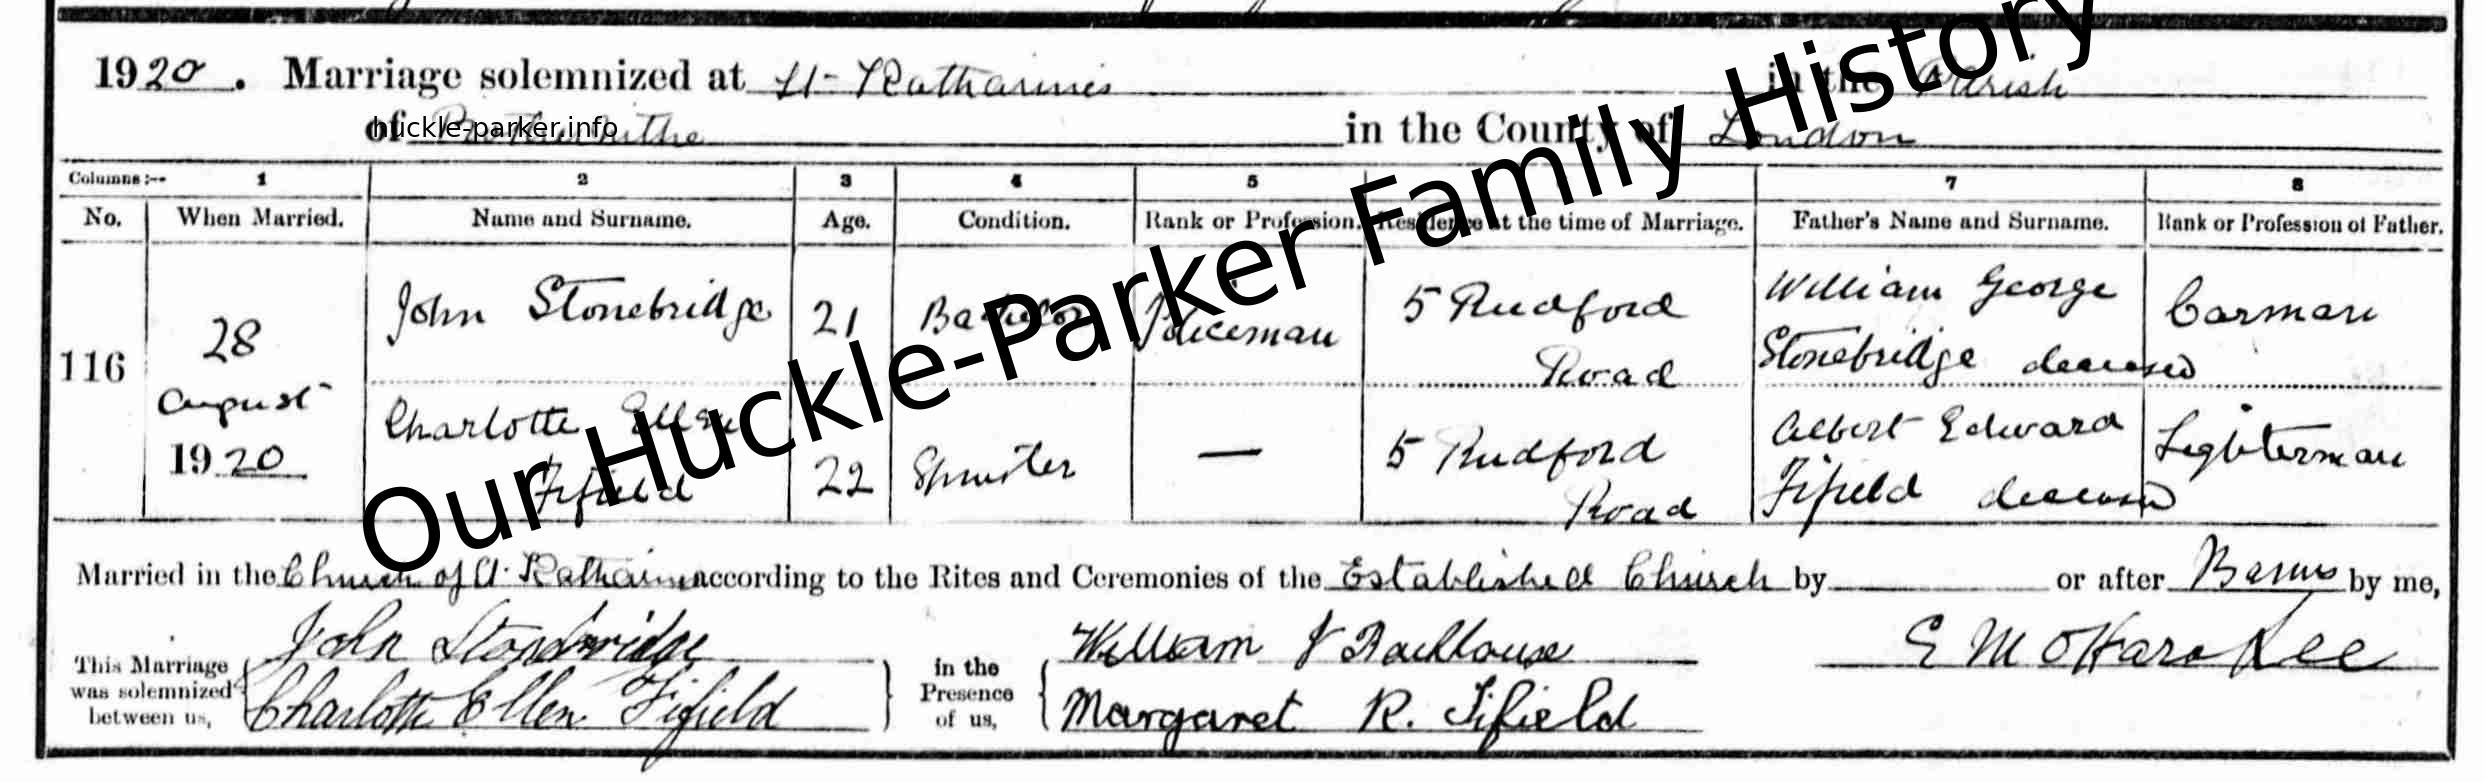 1920. Marriage solemnized at St Katharines in the Parish
of Rotherhithe in the County of London
huckle-parker.info
Our Huckle-Parker Family History
Columns:-- 1 2 3 4 5 7 8
No. When Married. Name and Surname. Age. Condition. Rank or Profession. Residence at the time of Marriage. Father's Name and Surname. Rank or Profession of Father.
116 28 August 1920
John Stonebridge 21 Bachelor Policeman 5 Rudford Road William George Stonebridge deceased Carman
Charlotte Ellen Fifield 22 Spinster — 5 Rudford Road Albert Edward Fifield deceased Lighterman
Married in the Church of St. Katharines according to the Rites and Ceremonies of the Established Church by or after Banns by me,
This Marriage was solemnized between us,
John Stonebridge
Charlotte Ellen Fifield
in the Presence of us,
William J
Margaret R. Fifield
E M O'Hara Lee